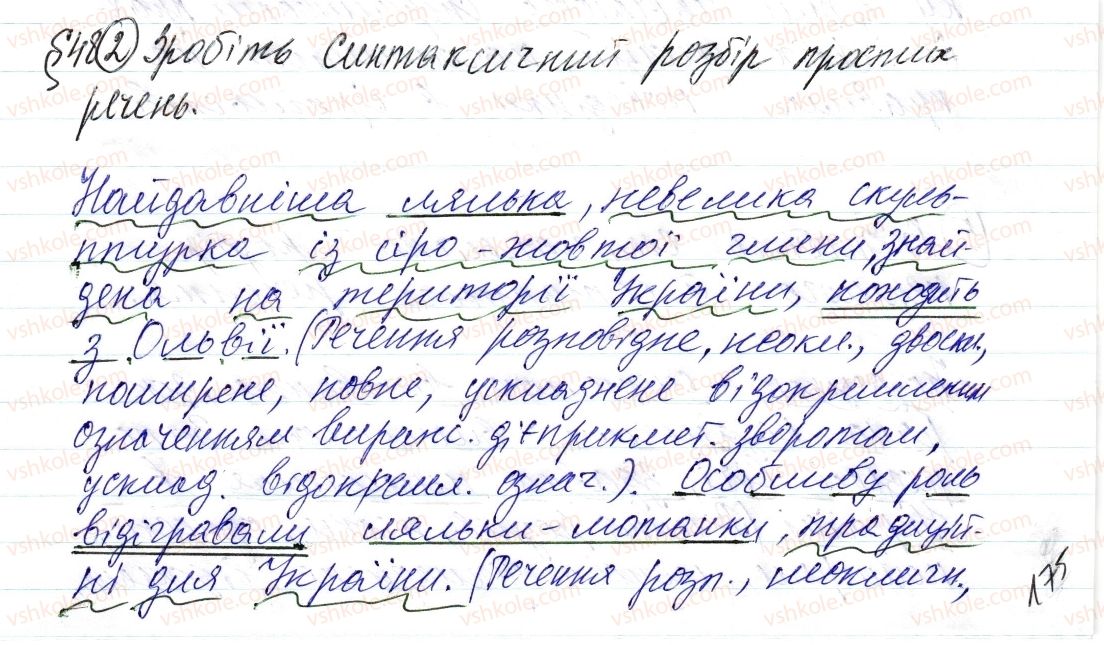 §48 2 Зробіть синтаксичний розбір простих
речень.
Найдавніша лялька, невелика скуль-
птурка із сіро-жовтої глини, знай-
дена на території України, походить
з Ольвії. (Речення розповідне, неокл., двоскл.,
поширене, повне, ускладнене відокремленим
означенням виражс. дієприкмет. зворотом,
усклад. відокремл. означ.). Особливу роль
відігравали ляльки-мотанки, традицій-
ні для України. (Речення розп., неокличн.,
175